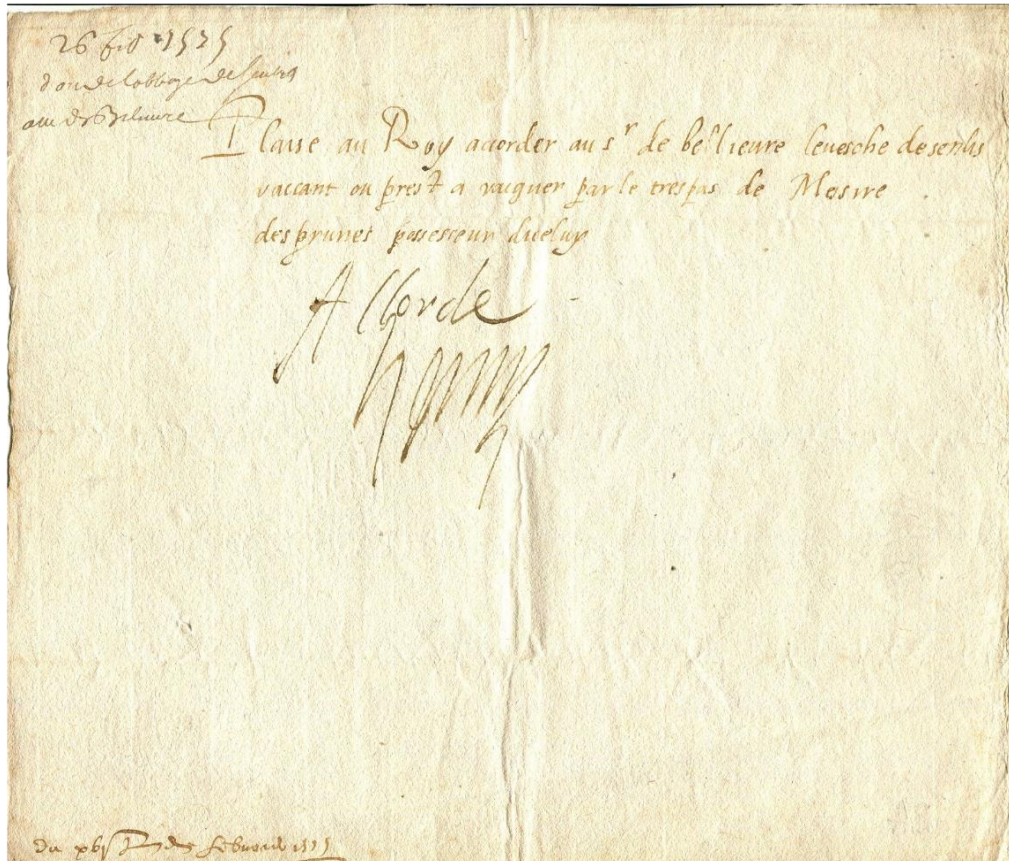 26 feb 1575
don de labbaye de Senlis
au Sr de Belieure
Plaise au Roy acorder au sr de bellieure levesche de senlis
vaccant ou prest a vaquer par le trespas de Messire
des prunes possesseur diceluy
Accorde
Henry
Du de febvrier 1575